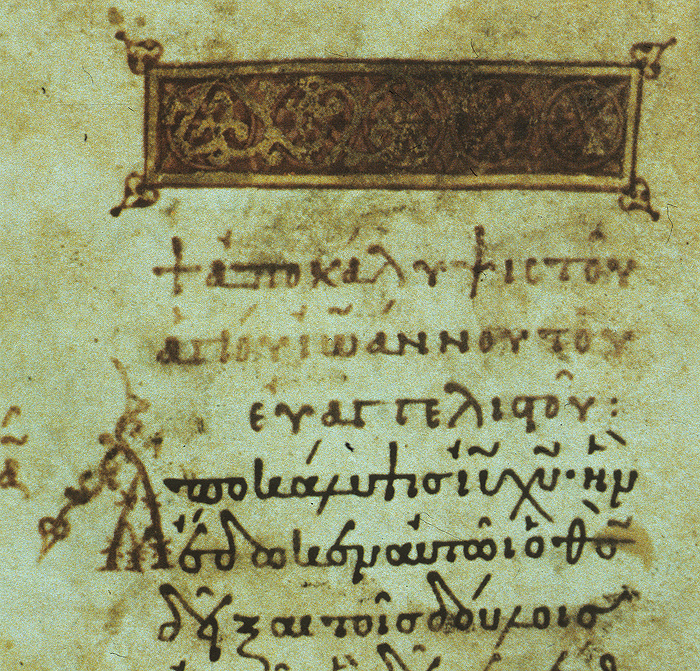 + ἀποκάλυψις τοῦ
ἁγίου ἰωάννου τοῦ
εὐαγγελιϛοῦ:
Ἀποκάλυψις ἰ̅υ̅ χ̅υ̅· ἣν
ἔδωκεν αὐτῶι ὁ θ̅ς̅
δεῖξαι τοῖς δούλοις